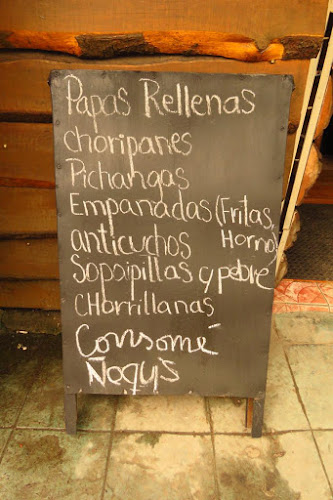 Papas Rellenas
choripanes
Pichangas
Empanadas (Fritas,
anticuchos Horno)
Sopaipillas y pebre
CHorrillanas
Consomé
Ñoquys